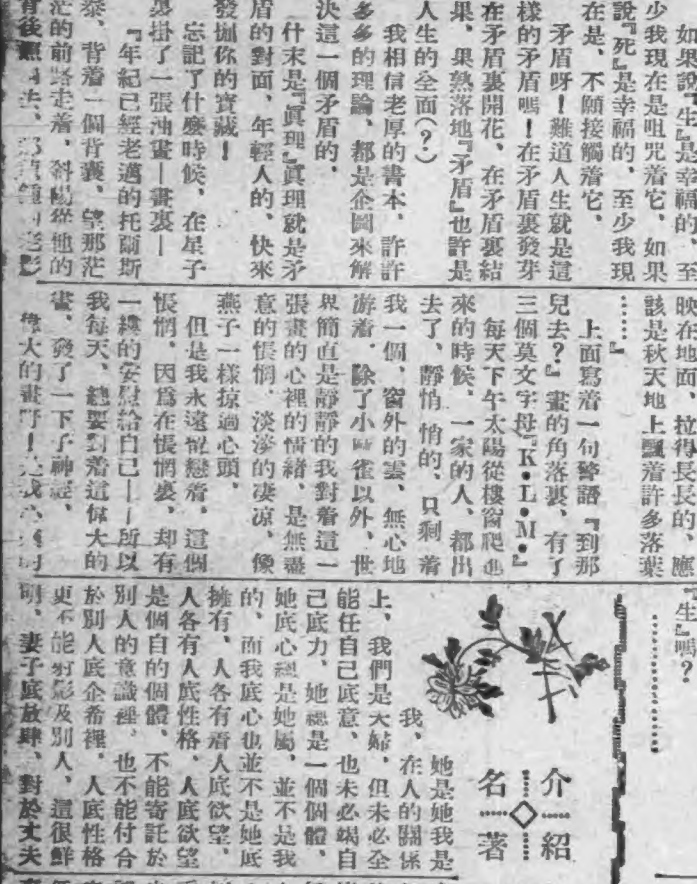 如果說『生』是幸福的、至
少我現在是咀咒着它、如果
說『死』是幸福的、至少我現
在是、不願接觸着它、
矛盾呀！難道人生就是這
樣的矛盾嗎！在矛盾裏發芽
在矛盾裏開花、在矛盾裏結
果、果熟落地『矛盾』也許是
人生的全面（？）
我相信老厚的書本、許許
多多的理論、都是企圖來解
決這一個矛盾的、
什末是『眞理』眞理就是矛
盾的對面、年輕人的、快來
發掘你的寶藏！
忘記了什麼時候、在星子
裏掛了一張油畫—畫裏—
『年紀已經老邁的托爾斯
泰、背着一個背囊、望那茫
茫的前路走着、斜陽從他的
背後照
映在地面、拉得長長的、應
該是秋天地上飄着許多落葉
……』
上面寫着一句警語『到那
兒去？』畫的角落裏、有了
三個英文字母『K•L•M•』
每天下午太陽從樓窗爬進
來的時候、一家的人、都出
去了、靜悄悄的、只剩着
我一個、窗外的雲、無心地
游着、除了小麻雀以外、世
界簡直是靜靜的我對着這一
張畫的心裡的情緖、是無盡
意的悵惘、淡淡的凄凉、像
燕子一樣掠過心頭、
但是我永遠留戀着、這個
悵惘、因爲在悵惘裏、却有
一縷的安慰給自己——所以
我每天、總要對着這偉大的
畫、發了一下子神經、
偉大的畫呀！
『生』嗎？
…………
介紹
名著
她是她我是
我、在人的關係
上、我們是夫婦、但未必全
能任自己底意、也未必竭自
己底力、她總是一個個體、
她底心裡是她屬、並不是我
的、而我底心也並不是她底
擁有、人各有着人底欲望、
人各有人底性格、人底欲望
是個自的個體、不能寄託於
別人的意識裡、也不能付合
於別人底企希裡、人底性格
更不能射影及別人、這很鮮
明、妻子底放肆、對於丈夫